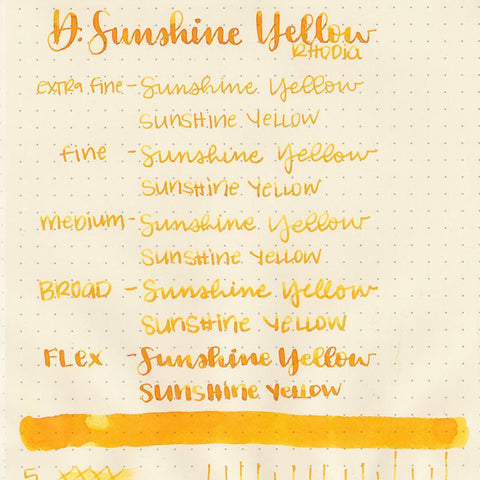 D. Sunshine Yellow
RHODIA
Extra Fine - Sunshine Yellow
Sunshine Yellow
Fine - Sunshine Yellow
Sunshine Yellow
Medium - Sunshine Yellow
Sunshine Yellow
Broad - Sunshine Yellow
Sunshine Yellow
Flex - Sunshine Yellow
Sunshine Yellow
5 xxxx